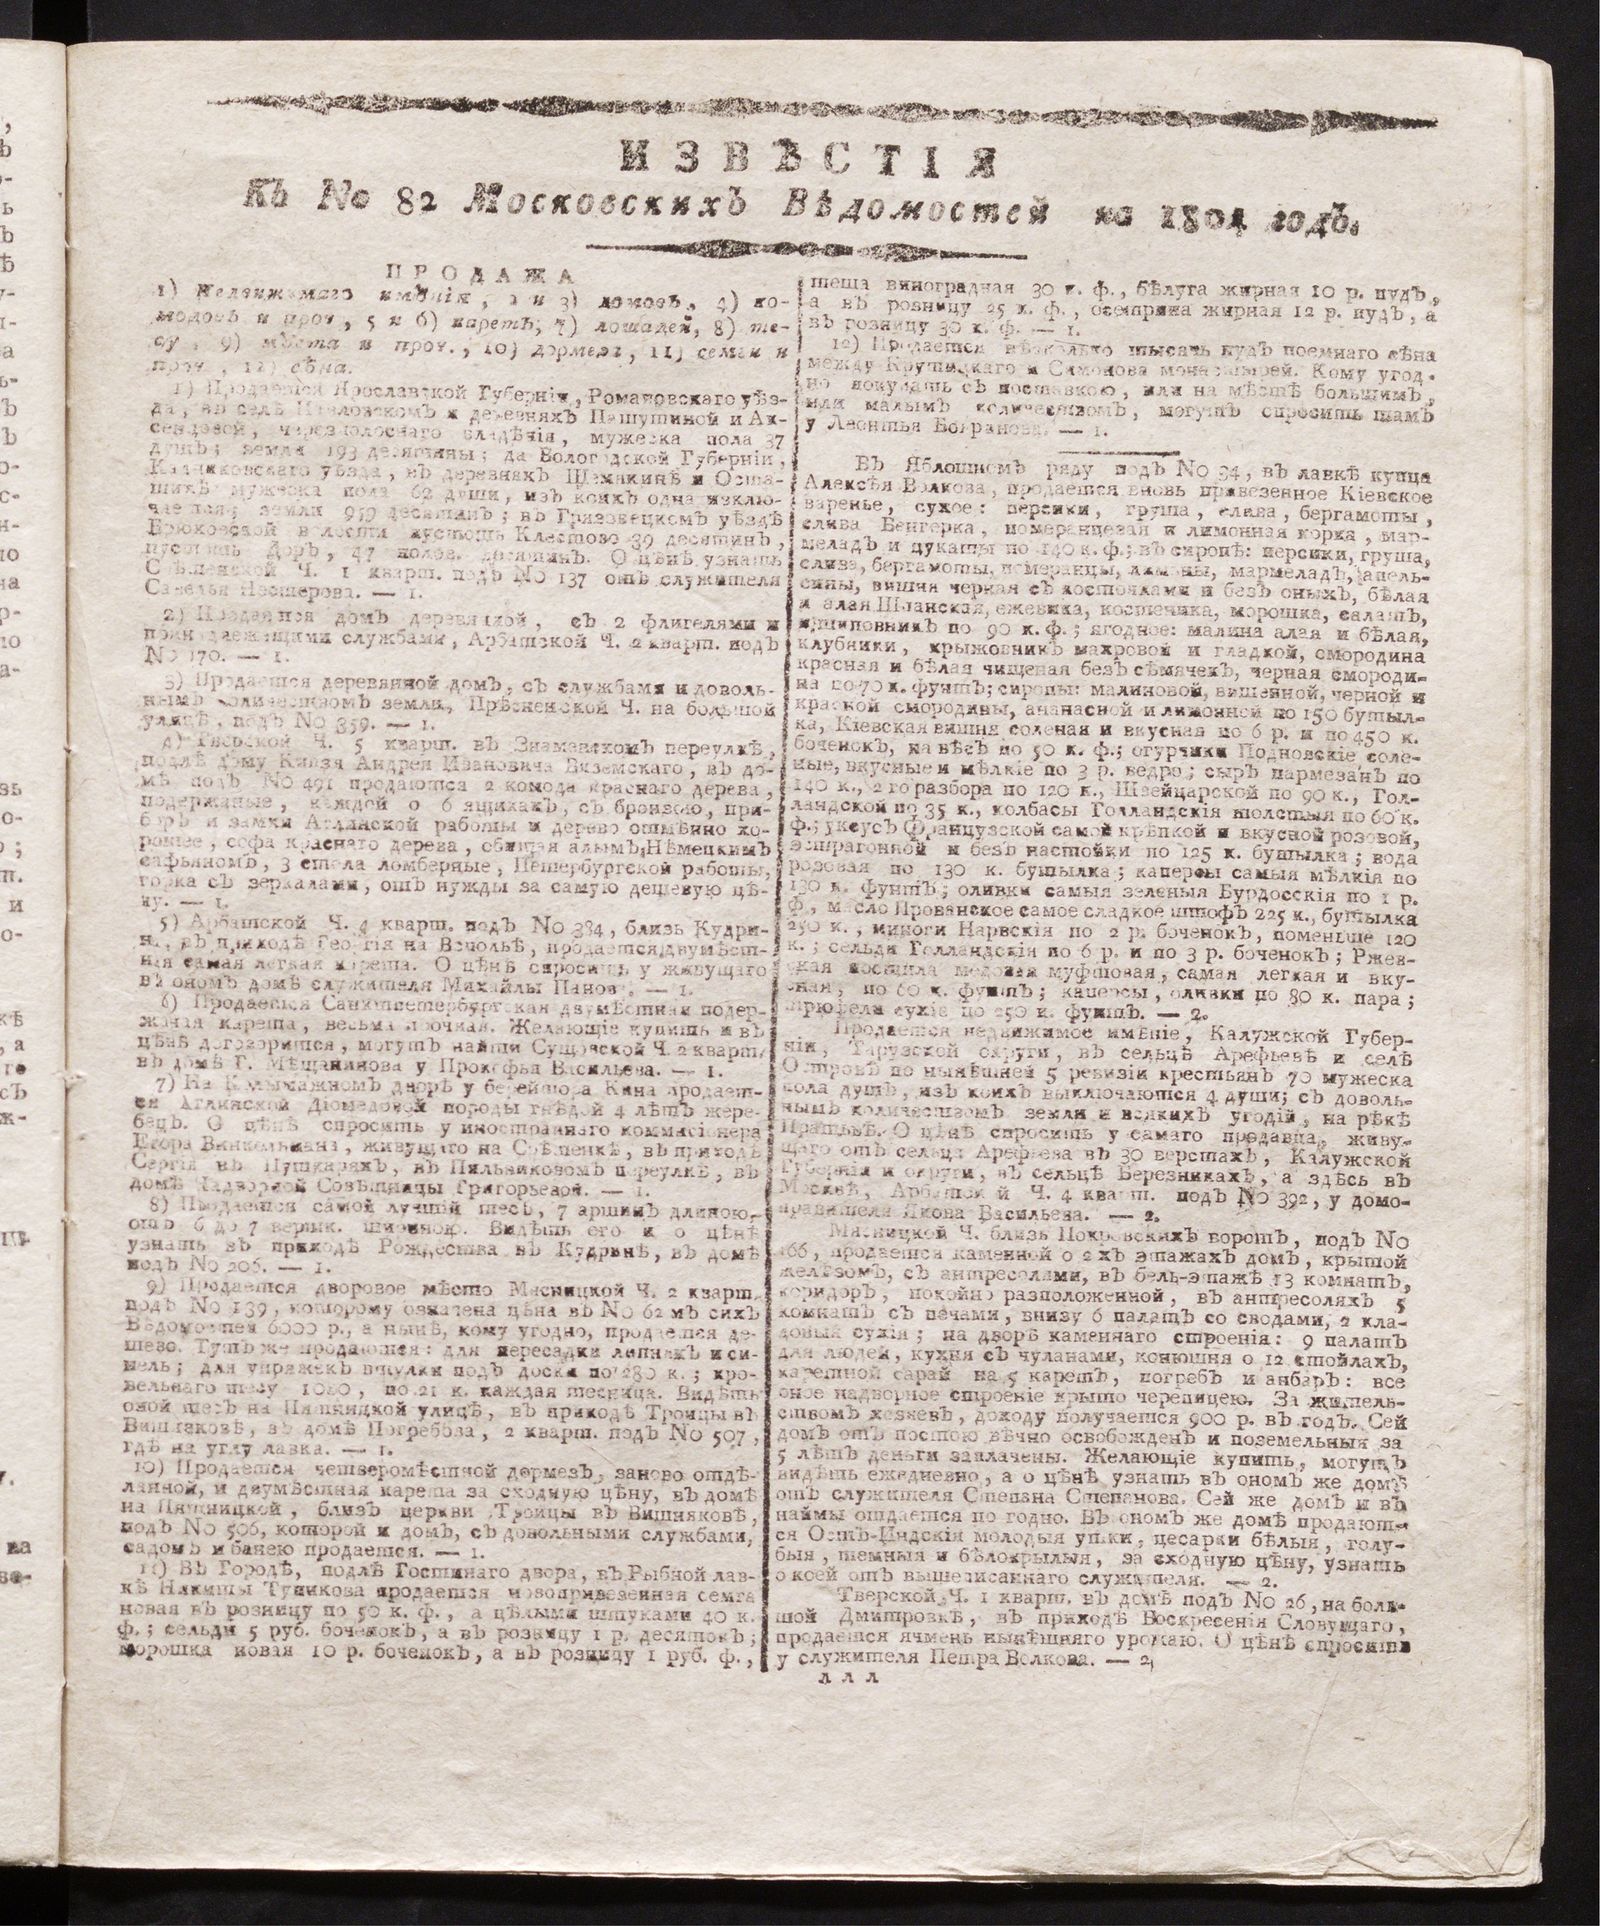 ИЗВѢСТІЯ
Къ No 82 Московскихъ Вѣдомостей на 1804 годъ.
ПРОДАЖА
1) Недвижимаго имѣнія, 2 и 3) домовъ, 4) ко-
модовъ и проч, 5 и 6) каретъ, 7) лошадей, 8) те-
су, 9) мѣста и проч., 10) дормеза, 11) семги и
проч., 12) сѣна.
1) Продается Ярославской Губерніи, Романовскаго уѣз-
да, въ селѣ и деревняхъ Пашутиной и Ак-
сенцовой, черезполоснаго владѣнія, мужеска пола 37
душъ; земли 193 десятины; да Вологодской Губерніи,
Кадниковскаго уѣзда, въ деревняхъ Шемякинѣ и Оста-
шихѣ мужеска пола 62 души, изъ коихъ одна исклю-
чается; земли 959 десятинъ; въ Грязовецкомъ уѣздѣ
Брюховской волости пустошь Клестово 39 десятинъ,
пустошь Доръ, 47 полов. десятинъ. О цѣнѣ узнать
Срѣтенской Ч. 1 кварт. подъ No 137 отъ служителя
Савелья Нестерова. — 1.
2) Продается домъ деревянной, съ 2 флигелями и
принадлежащими службами, Арбатской Ч. 2 кварт. подъ
No 170. — 1.
3) Продается деревянной домъ, съ службами и доволь-
нымъ количествомъ земли, Прѣсненской Ч. на большой
улицѣ, подъ No 359. — 1.
4) Тверской Ч. 5 кварт. въ Знаменскомъ переулкѣ,
подлѣ дому Князя Андрея Ивановича Вяземскаго, въ до-
мѣ подъ No 491 продаются 2 комода краснаго дерева,
подержаные, каждой о 6 ящикахъ, съ бронзою, при-
боръ и замки Аглинской работы и дерево отмѣнно хо-
рошее, софа краснаго дерева, обитая алымъ Нѣмецкимъ
сафьяномъ, 3 стола ломберные, Петербургской работы,
горка съ зеркалами, отъ нужды за самую дешевую цѣ-
ну. — 1.
5) Арбатской Ч. 4 кварт. подъ No 384, близь Кудри-
на, въ приходѣ Георгія на Всполье, продается двумѣст-
ная самая легкая карета. О цѣнѣ спросить у живущаго
въ ономъ домѣ служителя Михайлы Панова. — 1.
6) Продается Санктпетербургская двумѣстная подер-
жаная карета, весьма прочная. Желающіе купить и въ
цѣнѣ договорится, могутъ найти Сущовской Ч. 2 кварт.
въ домѣ Г. Мѣщанинова у Прокофья Васильева. — 1.
7) На Колымажномъ дворѣ у берейтора Кина продает-
ся Аглинской Діомедовой породы гнѣдой 4 лѣтъ жере-
бецъ. О цѣнѣ спросить у иностраннаго коммисіонера
Егора Винкельмана, живущаго на Срѣтенкѣ, въ приходѣ
Сергія въ Пушкаряхъ, въ Пильниковомъ переулкѣ, въ
домѣ Надворной Совѣтницы Григорьевой. — 1.
8) Продается самой лучшій тесъ, 7 аршинъ длиною,
отъ 6 до 7 вершк. шириною. Видѣть его и о цѣнѣ
узнать въ приходѣ Рождества въ Кудринѣ, въ домѣ
подъ No 206. — 1.
9) Продается дворовое мѣсто Мясницкой Ч. 2 кварт.
подъ No 139, которому означена цѣна въ No 62 мъ сихъ
Вѣдомостей 6000 р., а нынѣ, кому угодно, продается де-
шево. Тутъ же продаются: для пересадки липнякъ и си-
нель; для упряжекъ втулки подъ доски по 280 к.; кро-
вельнаго тесу 1080, по 21 к. каждая тесница. Видѣть
оной тесъ на Пятницкой улицѣ, въ приходѣ Троицы въ
Вишняковѣ, въ домѣ Погребова, 2 кварт. подъ No 507,
гдѣ на углу лавка. — 1.
10) Продается четверомѣстной дормезъ, заново отдѣ-
ланной, и двумѣстная карета за сходную цѣну, въ домѣ
на Пятницкой, близъ церкви Троицы въ Вишняковѣ,
подъ No 506, которой и домъ, съ довольными службами,
садомъ и банею продается. — 1.
11) Въ Городѣ, подлѣ Гостинаго двора, въ Рыбной лав-
кѣ Никиты Тупикова продается новопривезенная семга
новая въ розницу по 50 к. ф., а цѣлыми штуками 40 к.
ф.; сельди 5 руб. боченокъ, а въ розницу 1 р. десятокъ;
морошка новая 10 р. боченокъ, а въ розницу 1 руб. ф.,
теша виноградная 30 к. ф., бѣлуга жирная 10 р. пудъ,
а въ розницу 25 к. ф., осетрина жирная 12 р. пудъ, а
въ розницу 30 к. ф. — 1.
12) Продается нѣсколько тысячь пудъ поемнаго сѣна
между Крутицкаго и Симонова монастырей. Кому угод-
но покупать съ поставкою, или на мѣстѣ большимъ,
или малымъ количествомъ, могутъ спросить тамъ
у Леонтья Бояранова. — 1.
Въ Яблошномъ ряду подъ No 34, въ лавкѣ купца
Алексѣя Волкова, продается вновь привезенное Кіевское
варенье, сухое: персики, груша, слива, бергамоты,
слива Венгерка, померанцевая и лимонная корка, мар-
меладъ и цукаты по 140 к. ф.; въ сиропѣ: персики, груша,
слива, бергамоты, померанцы, лимоны, мармеладъ, апель-
сины, вишня черная съ косточками и безъ оныхъ, бѣлая
и алая Шпанская, ежевика, костеника, морошка, салатъ,
и шиповникъ по 90 к. ф.; ягодное: малина алая и бѣлая,
клубники, крыжовникъ махровой и гладкой, смородина
красная и бѣлая чищеная безъ сѣмячекъ, черная смороди-
на по 70 к. фунтъ; сиропы: малиновой, вишенной, черной и
красной смородины, ананасной и лимонной по 150 бутыл-
ка, Кіевская вишня соленая и вкусная по 6 р. и по 450 к.
боченокъ, на вѣсъ по 50 к. ф.; огурчики Подновскіе соле-
ные, вкусные и мѣлкіе по 3 р. ведро; сыръ пармезанъ по
140 к., 2 го разбора по 120 к., Швейцарской по 90 к., Гол-
ландской по 35 к., колбасы Голландскія толстыя по 60 к.
ф.; уксусъ Французской самой крѣпкой и вкусной розовой,
эстрагонной и безъ настойки по 125 к. бутылка; вода
розовая по 130 к. бутылка; каперсы самыя мѣлкія по
130 к. фунтъ; оливки самыя зеленыя Бурдосскія по 1 р.
ф., масло Прованское самое сладкое штофъ 225 к., бутылка
250 к., миноги Нарвскія по 2 р. боченокъ, поменьше 120
к.; сельди Голландскія по 6 р. и по 3 р. боченокъ; Ржев-
ская постила медовая муфтовая, самая легкая и вку-
сная, по 60 к. фунтъ; каперсы, оливки по 80 к. пара;
трюфели сухіе по 250 к. фунтъ. — 2.
Продается недвижимое имѣніе, Калужской Губер-
ніи, Тарузской округи, въ сельцѣ Арефьевѣ и селѣ
Островѣ по нынѣшней 5 ревизіи крестьянъ 70 мужеска
пола душъ, изъ коихъ выключаются 4 души; съ доволь-
нымъ количествомъ земли и всякихъ угодій, на рѣкѣ
Протвѣ. О цѣнѣ спросить у самаго продавца, живу-
щаго отъ сельца Арефьева въ 30 верстахъ, Калужской
Губерніи и округи, въ сельцѣ Березникахъ, а здѣсь въ
Москвѣ, Арбатской Ч. 4 кварт. подъ No 392, у домо-
правителя Якова Васильева. — 2.
Мясницкой Ч. близь Покровскихъ воротъ, подъ No
166, продается каменной о 2 хъ этажахъ домъ, крытой
желѣзомъ, съ антресолями, въ бель-этажѣ 13 комнатъ,
коридоръ, покойно расположенной, въ антресоляхъ 5
комнатъ съ печами, внизу 6 палатъ со сводами, 2 кла-
довыя сухія; на дворѣ каменнаго строенія: 9 палатъ
для людей, кухня съ чуланами, конюшня о 12 стойлахъ,
каретной сарай на 5 каретъ, погребъ и анбаръ: все
оное надворное строеніе крыто черепицею. За житель-
ствомъ хозяевъ, доходу получается 900 р. въ годъ. Сей
домъ отъ постою вѣчно освобожденъ и поземельныя за
5 лѣтъ деньги заплачены. Желающіе купить, могутъ
видѣть ежедневно, а о цѣнѣ узнать въ ономъ же домѣ
отъ служителя Степана Степанова. Сей же домъ и въ
наймы отдается по годно. Въ ономъ же домѣ продают-
ся Остъ-Индскія молодыя утки, цесарки бѣлыя, голу-
быя, темныя и бѣлокрылыя, за сходную цѣну, узнать
о коей отъ вышеписаннаго служителя. — 2.
Тверской Ч. 1 кварт. въ домѣ подъ No 26, на боль-
шой Дмитровкѣ, въ приходѣ Воскресенія Словущаго,
продается ячмень нынѣшняго урожаю. О цѣнѣ спросить
у служителя Петра Волкова. — 2
л л л